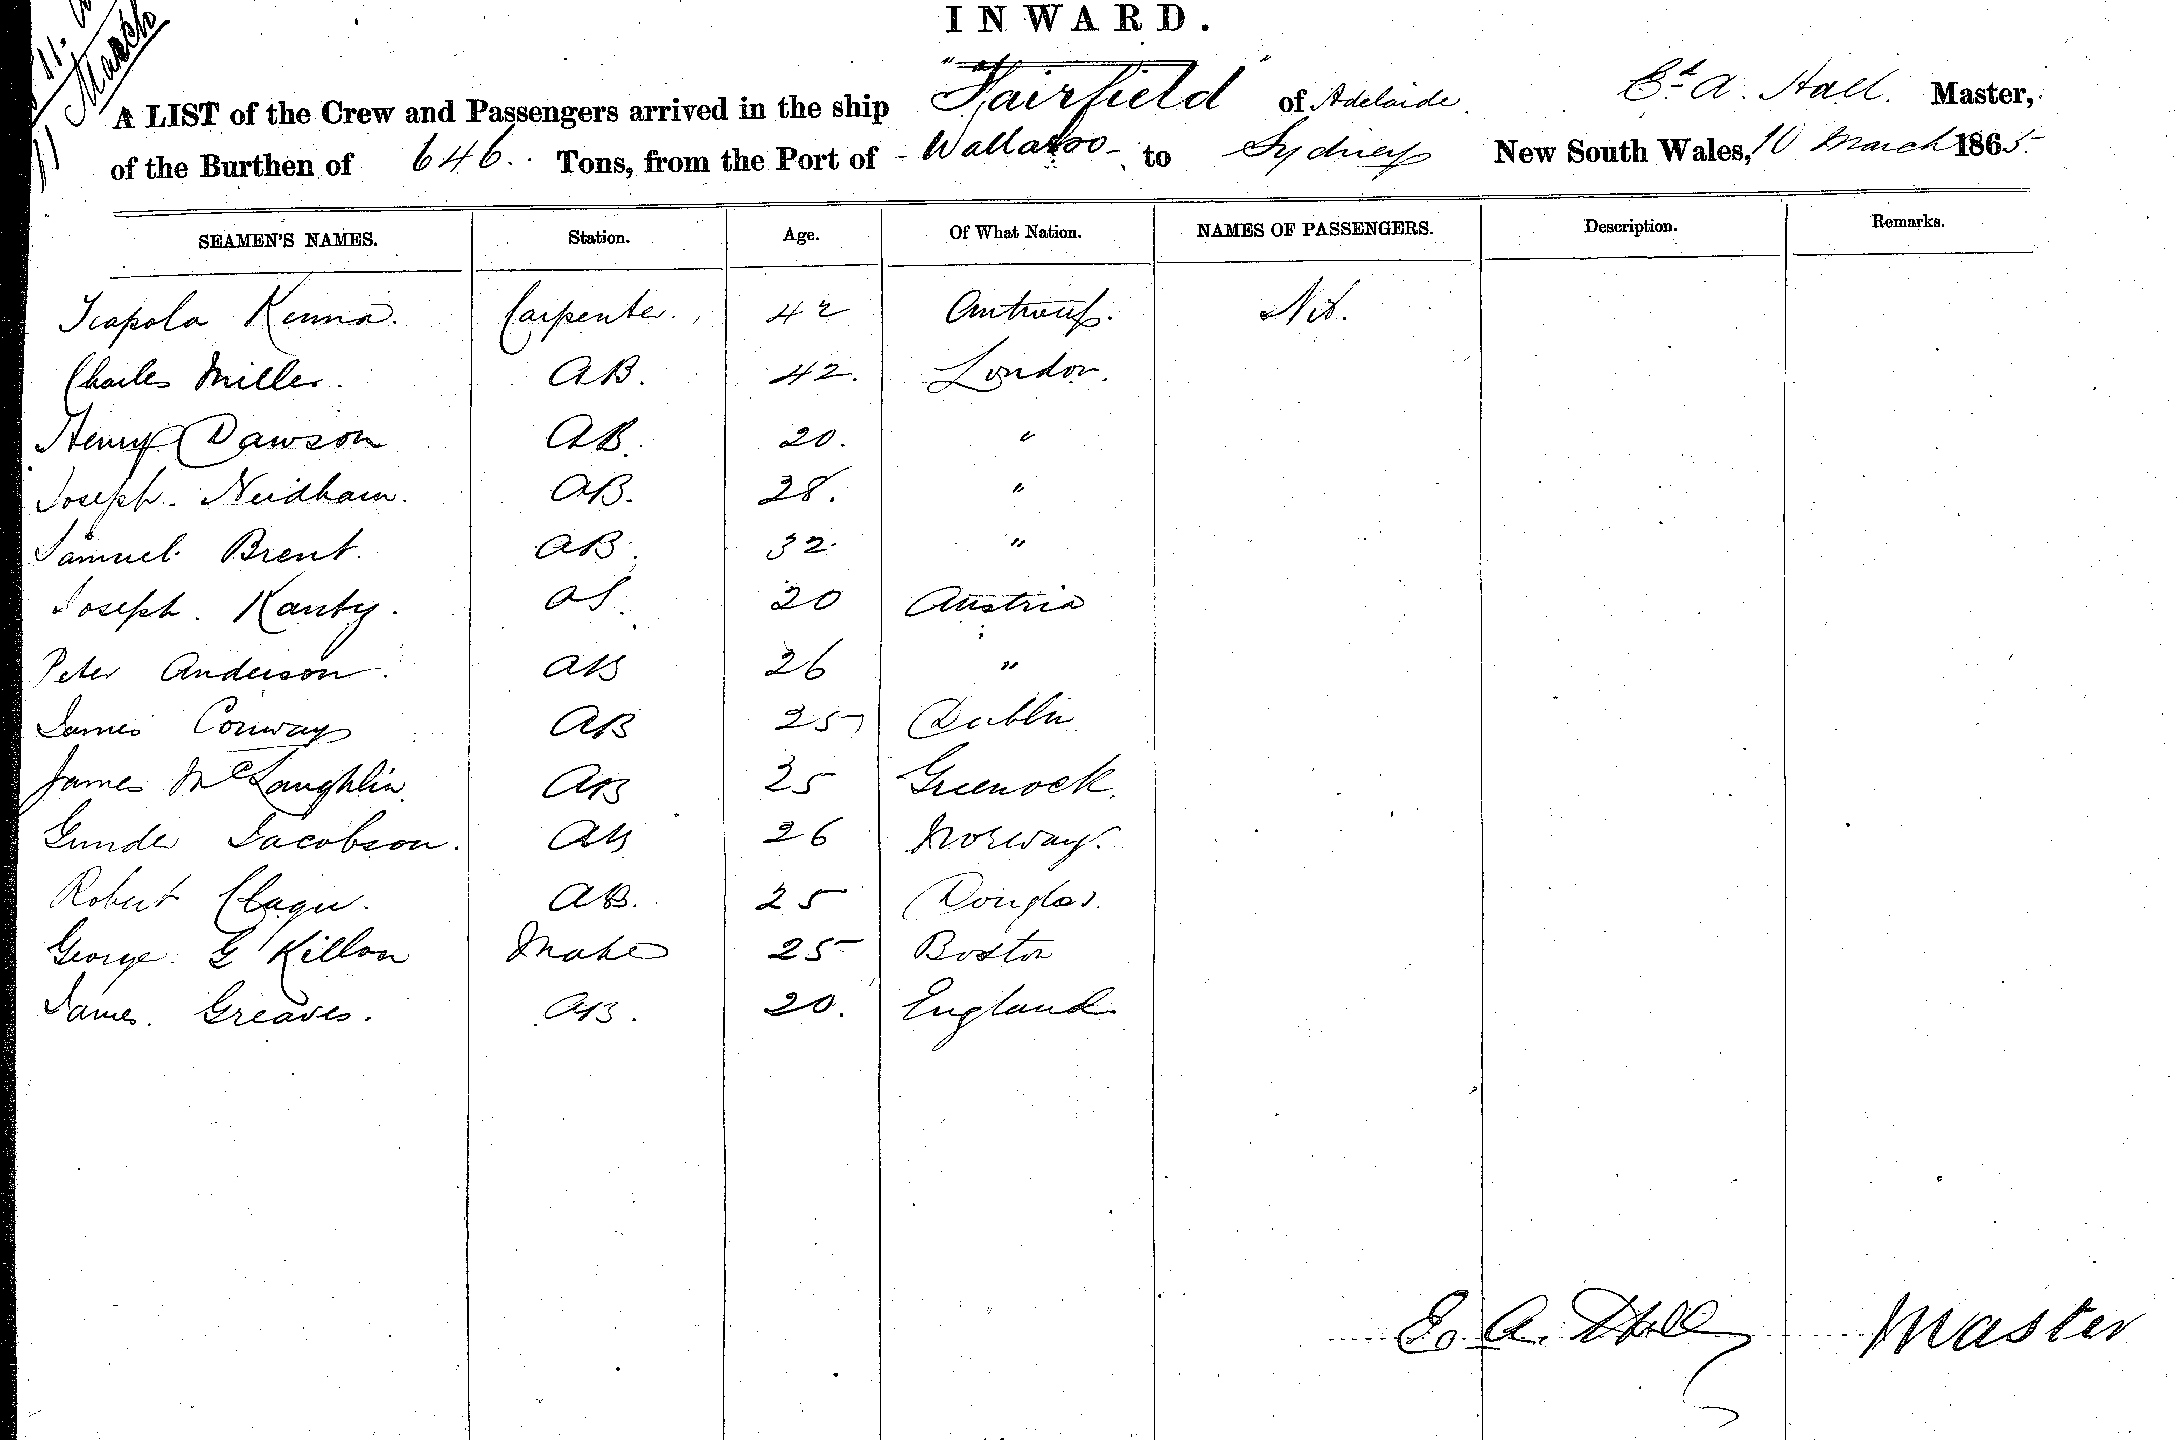 11.
11 March
INWARD.
A LIST of the Crew and Passengers arrived in the ship "Fairfield" of Adelaide. Ed. A. Hall. Master,
of the Burthen of 646. Tons, from the Port of - Wallaroo - to Sydney New South Wales, 10 March 1865.
SEAMEN'S NAMES. Station. Age. Of What Nation. NAMES OF PASSENGERS. Description. Remarks.
Kenna. Carpenter. 42 Nil.
Charles Miller. AB. 42. London.
Henry Dawson AB. 20. "
Joseph. Neidham. AB. 28. "
Samuel Brent. AB. 32. "
Joseph. Kanty. OS. 20 Austria
Peter Anderson. AB 26 "
James Conway AB 25 Dublin
James McLaughlin. AB 25 Greenock.
Gunder Jacobson. AB 26 Norway.
Robert Clague. AB. 25 Douglas.
George. G Killon Mate 25 Boston
James. Greaves. AB. 20. England
E. A. Hall Master